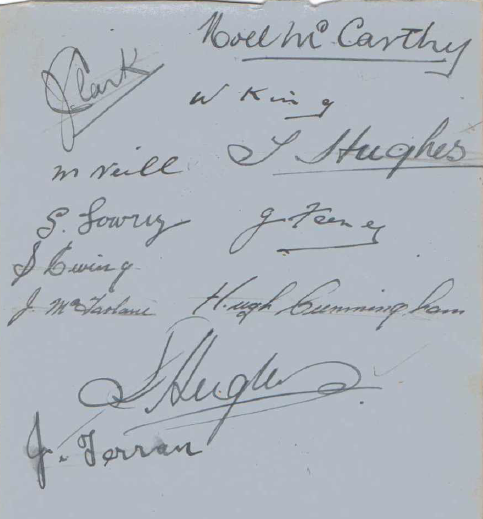 Noel Mc Carthy
J Clark
W King
T Hughes
M Neill
G. Lowry
J Feeney
S Ewing
J. McFarlane
Hugh Cunningham
T Hughes
J. Ferran